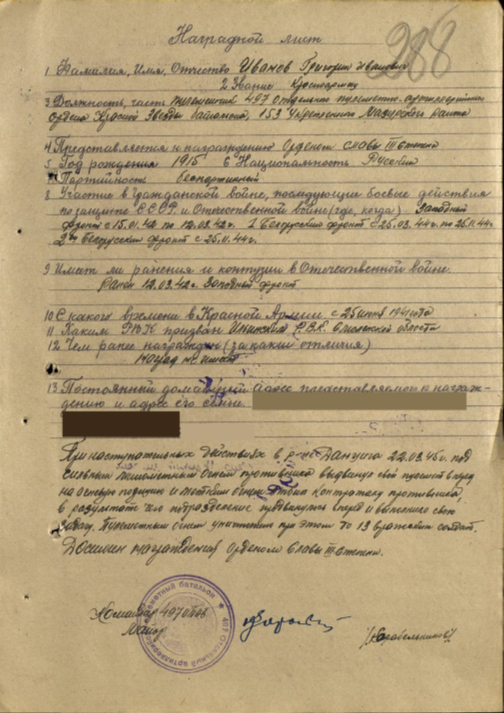 288
Наградной лист
1 Фамилия, Имя, Отчество Иванов Григорий Иванович
2 Звание Красноармеец
3 Должность, часть пулеметчик 497 Отдельного пулеметно-артиллерийского
ордена Красной Звезды батальона, 153 Укрепленного района
4 Представляется к награждению Орденом Славы III степени
5 Год рождения 1915 6 Национальность Русский
7 Партийность беспартийный
8 Участие в гражданской войне, последующие боевые действия
по защите СССР и Отечественной войне (где, когда) Западный
фронт с 15.01.42 по 12.03.42г. 1 Белорусский фронт с 25.03.44г. по 25.11.44г.
2й Белорусский фронт с 25.11.44г.
9 Имеет ли ранения и контузии в Отечественной войне.
Ранен 12.03.42г. Западный фронт
10 С какого времени в Красной Армии с 25 июля 1941 года
11 Каким РВК призван РВК области
12 Чем ранее награжден (за какие отличия)
Наград не имеет
13 Постоянный домашний адрес представляемого к награж-
дению и адрес его семьи.
При наступательных действиях в р-не Данцига 22.03.45г. под
сильным пулеметным огнем противника выдвинул свой пулемет вперед
на огневую позицию и метким огнем отбил контратаку противника,
в результате его подразделение продвинулось вперед и выполнило свою
задачу. Пулеметным огнем уничтожил при этом до 13 вражеских солдат.
Достоин награждения орденом Славы III степени.
Командир 497 ОПАБ
Майор
/Карабельников/